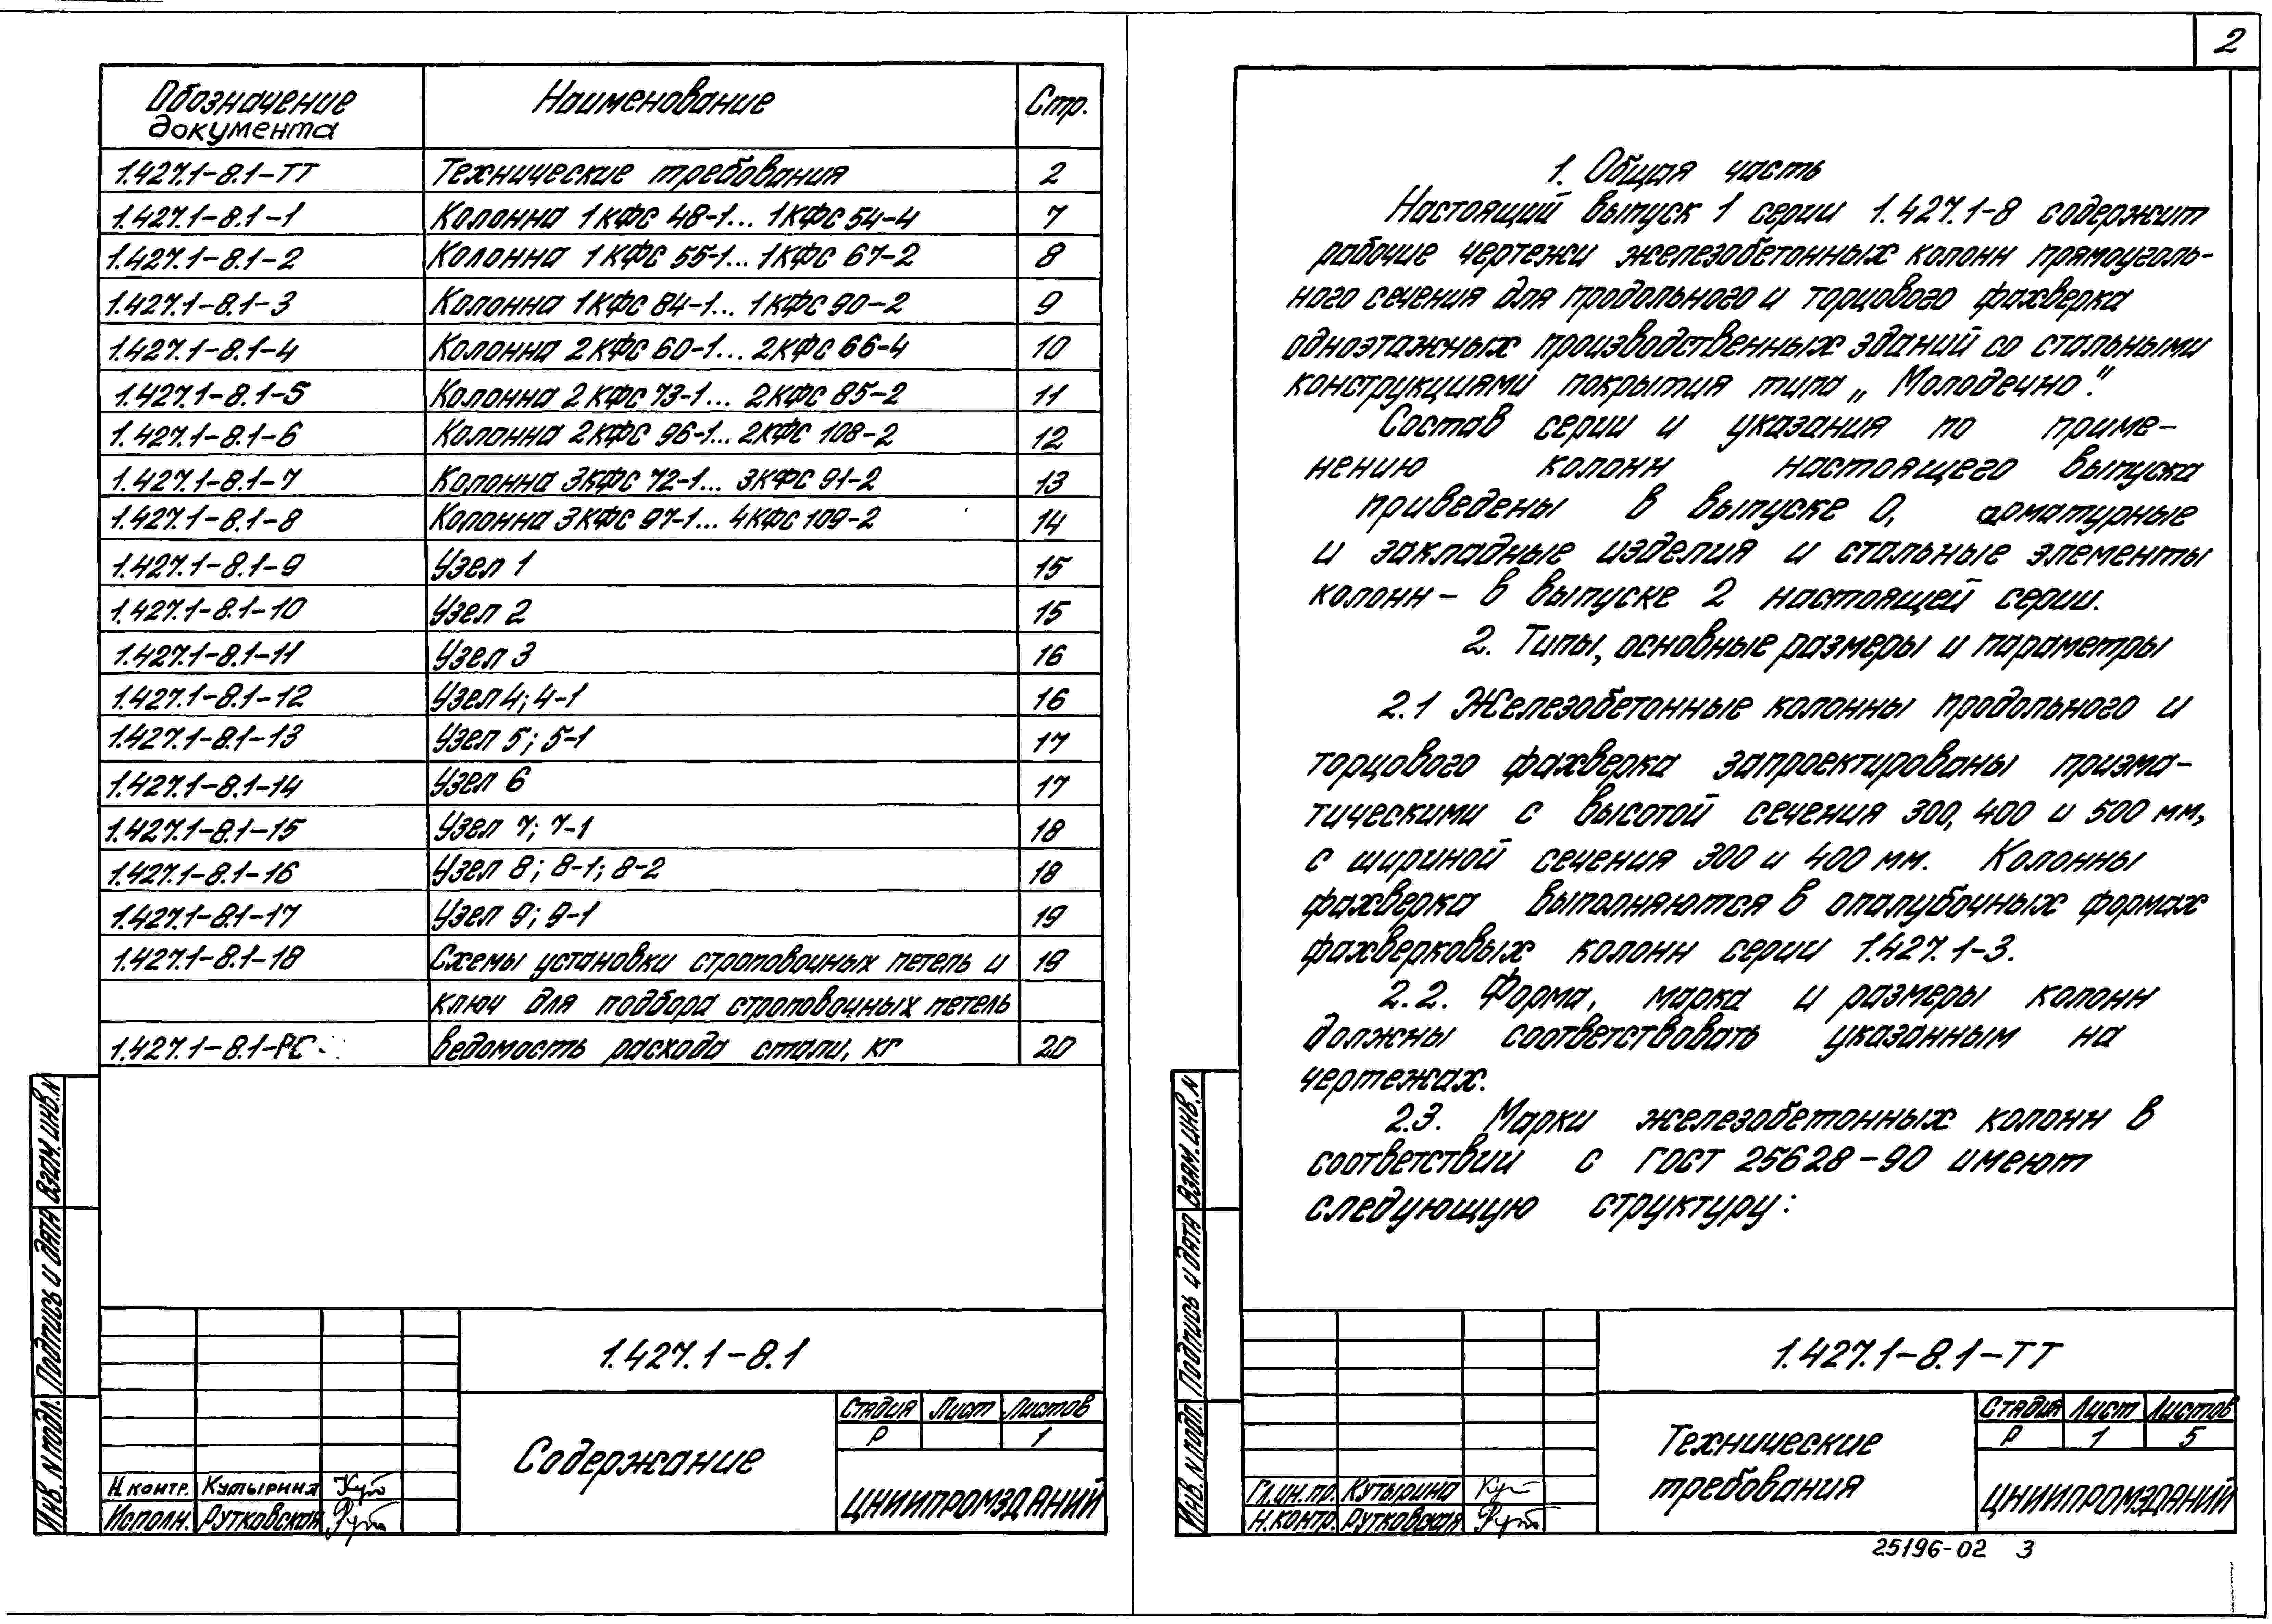 Обозначение документа Наименование Стр.
1.427.1-8.1-ТТ Технические требования 2
1.427.1-8.1-1 Колонна 1КФС 48-1... 1КФС 54-4 7
1.427.1-8.1-2 Колонна 1КФС 55-1... 1КФС 67-2 8
1.427.1-8.1-3 Колонна 1КФС 84-1... 1КФС 90-2 9
1.427.1-8.1-4 Колонна 2КФС 60-1... 2КФС 66-4 10
1.427.1-8.1-5 Колонна 2КФС 73-1... 2КФС 85-2 11
1.427.1-8.1-6 Колонна 2КФС 96-1... 2КФС 108-2 12
1.427.1-8.1-7 Колонна 3КФС 72-1... 3КФС 91-2 13
1.427.1-8.1-8 Колонна 3КФС 97-1... 4КФС 109-2 14
1.427.1-8.1-9 Узел 1 15
1.427.1-8.1-10 Узел 2 15
1.427.1-8.1-11 Узел 3 16
1.427.1-8.1-12 Узел 4; 4-1 16
1.427.1-8.1-13 Узел 5; 5-1 17
1.427.1-8.1-14 Узел 6 17
1.427.1-8.1-15 Узел 7; 7-1 18
1.427.1-8.1-16 Узел 8; 8-1; 8-2 18
1.427.1-8.1-17 Узел 9; 9-1 19
1.427.1-8.1-18 Схемы установки строповочных петель и 19
ключ для подбора строповочных петель
1.427.1-8.1-РС Ведомость расхода стали, кг 20
Взам. инв. N
Подпись и дата
Инв. N подл.
1.427.1-8.1
Содержание
Стадия Лист Листов
Р 1
ЦНИИПРОМЗДАНИЙ
Н. контр. Кутырина
Исполн. Рутковская
2
1. Общая часть
Настоящий выпуск 1 серии 1.427.1-8 содержит
рабочие чертежи железобетонных колонн прямоуголь-
ного сечения для продольного и торцового фахверка
одноэтажных производственных зданий со стальными
конструкциями покрытия типа „Молодечно".
Состав серии и указания по приме-
нению колонн настоящего выпуска
приведены в выпуске 0, арматурные
и закладные изделия и стальные элементы
колонн - в выпуске 2 настоящей серии.
2. Типы, основные размеры и параметры
2.1 Железобетонные колонны продольного и
торцового фахверка запроектированы призма-
тическими с высотой сечения 300, 400 и 500 мм,
с шириной сечения 300 и 400 мм. Колонны
фахверка выполняются в опалубочных формах
фахверковых колонн серии 1.427.1-3.
2.2. Форма, марка и размеры колонн
должны соответствовать указанным на
чертежах.
2.3. Марки железобетонных колонн в
соответствий с ГОСТ 25628-90 имеют
следующую структуру:
Взам. инв. N
Подпись и дата
Инв. N подл.
1.427.1-8.1-ТТ
Технические
требования
Стадия Лист Листов
Р 1 5
ЦНИИПРОМЗДАНИЙ
Гл. ин. пр. Кутырина
Н. контр. Рутковская
25196-02 3